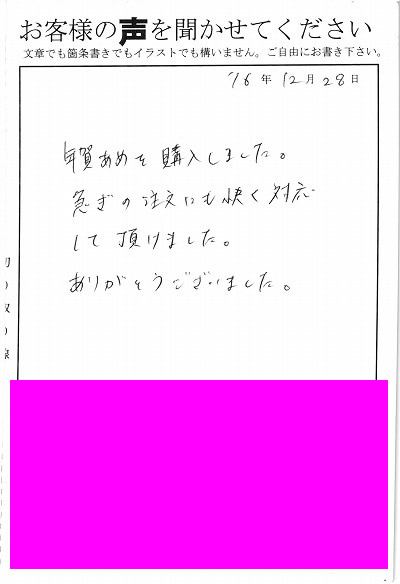 お客様の声を聞かせてください
文章でも箇条書きでもイラストでも構いません。ご自由にお書き下さい。
'16年12月28日
年賀あめを購入しました。
急ぎの注文にも快く対応
して頂けました。
ありがとうございました。
切り取り線